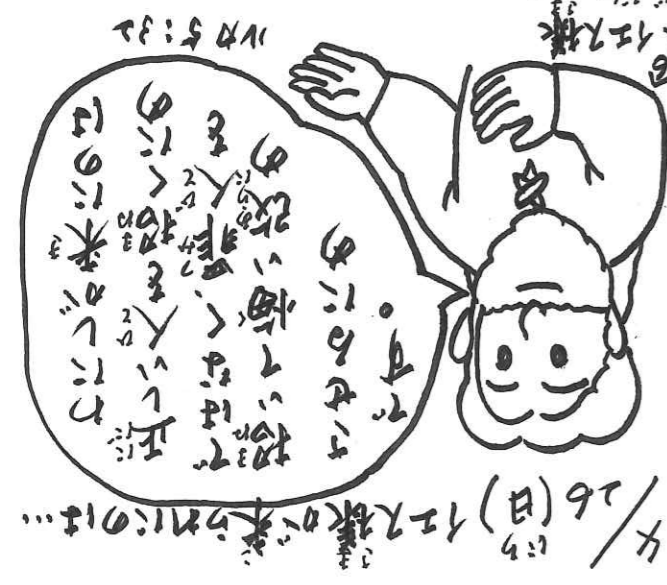 4/26(日) イエス様が来られたのは…
わたしが来たのは
正しい人を招くため
ではなく、罪人を
招いて悔い改め
させるため
です。
ルカ5:32
イエス様